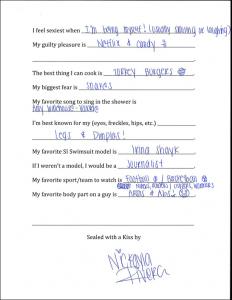 I feel sexiest when I'm being myself! (usually smiling or laughing)
My guilty pleasure is Netflix & candy
The best thing I can cook is Turkey Burgers
My biggest fear is snakes
My favorite song to sing in the shower is
I'm best known for my (eyes, freckles, hips, etc.)
Legs & Dimples!
My favorite SI Swimsuit model is Irina Shayk
If I weren't a model, I would be a Journalist
My favorite sport/team to watch is Football / Basketball
My favorite body part on a guy is Arms & Abs!
Sealed with a Kiss by